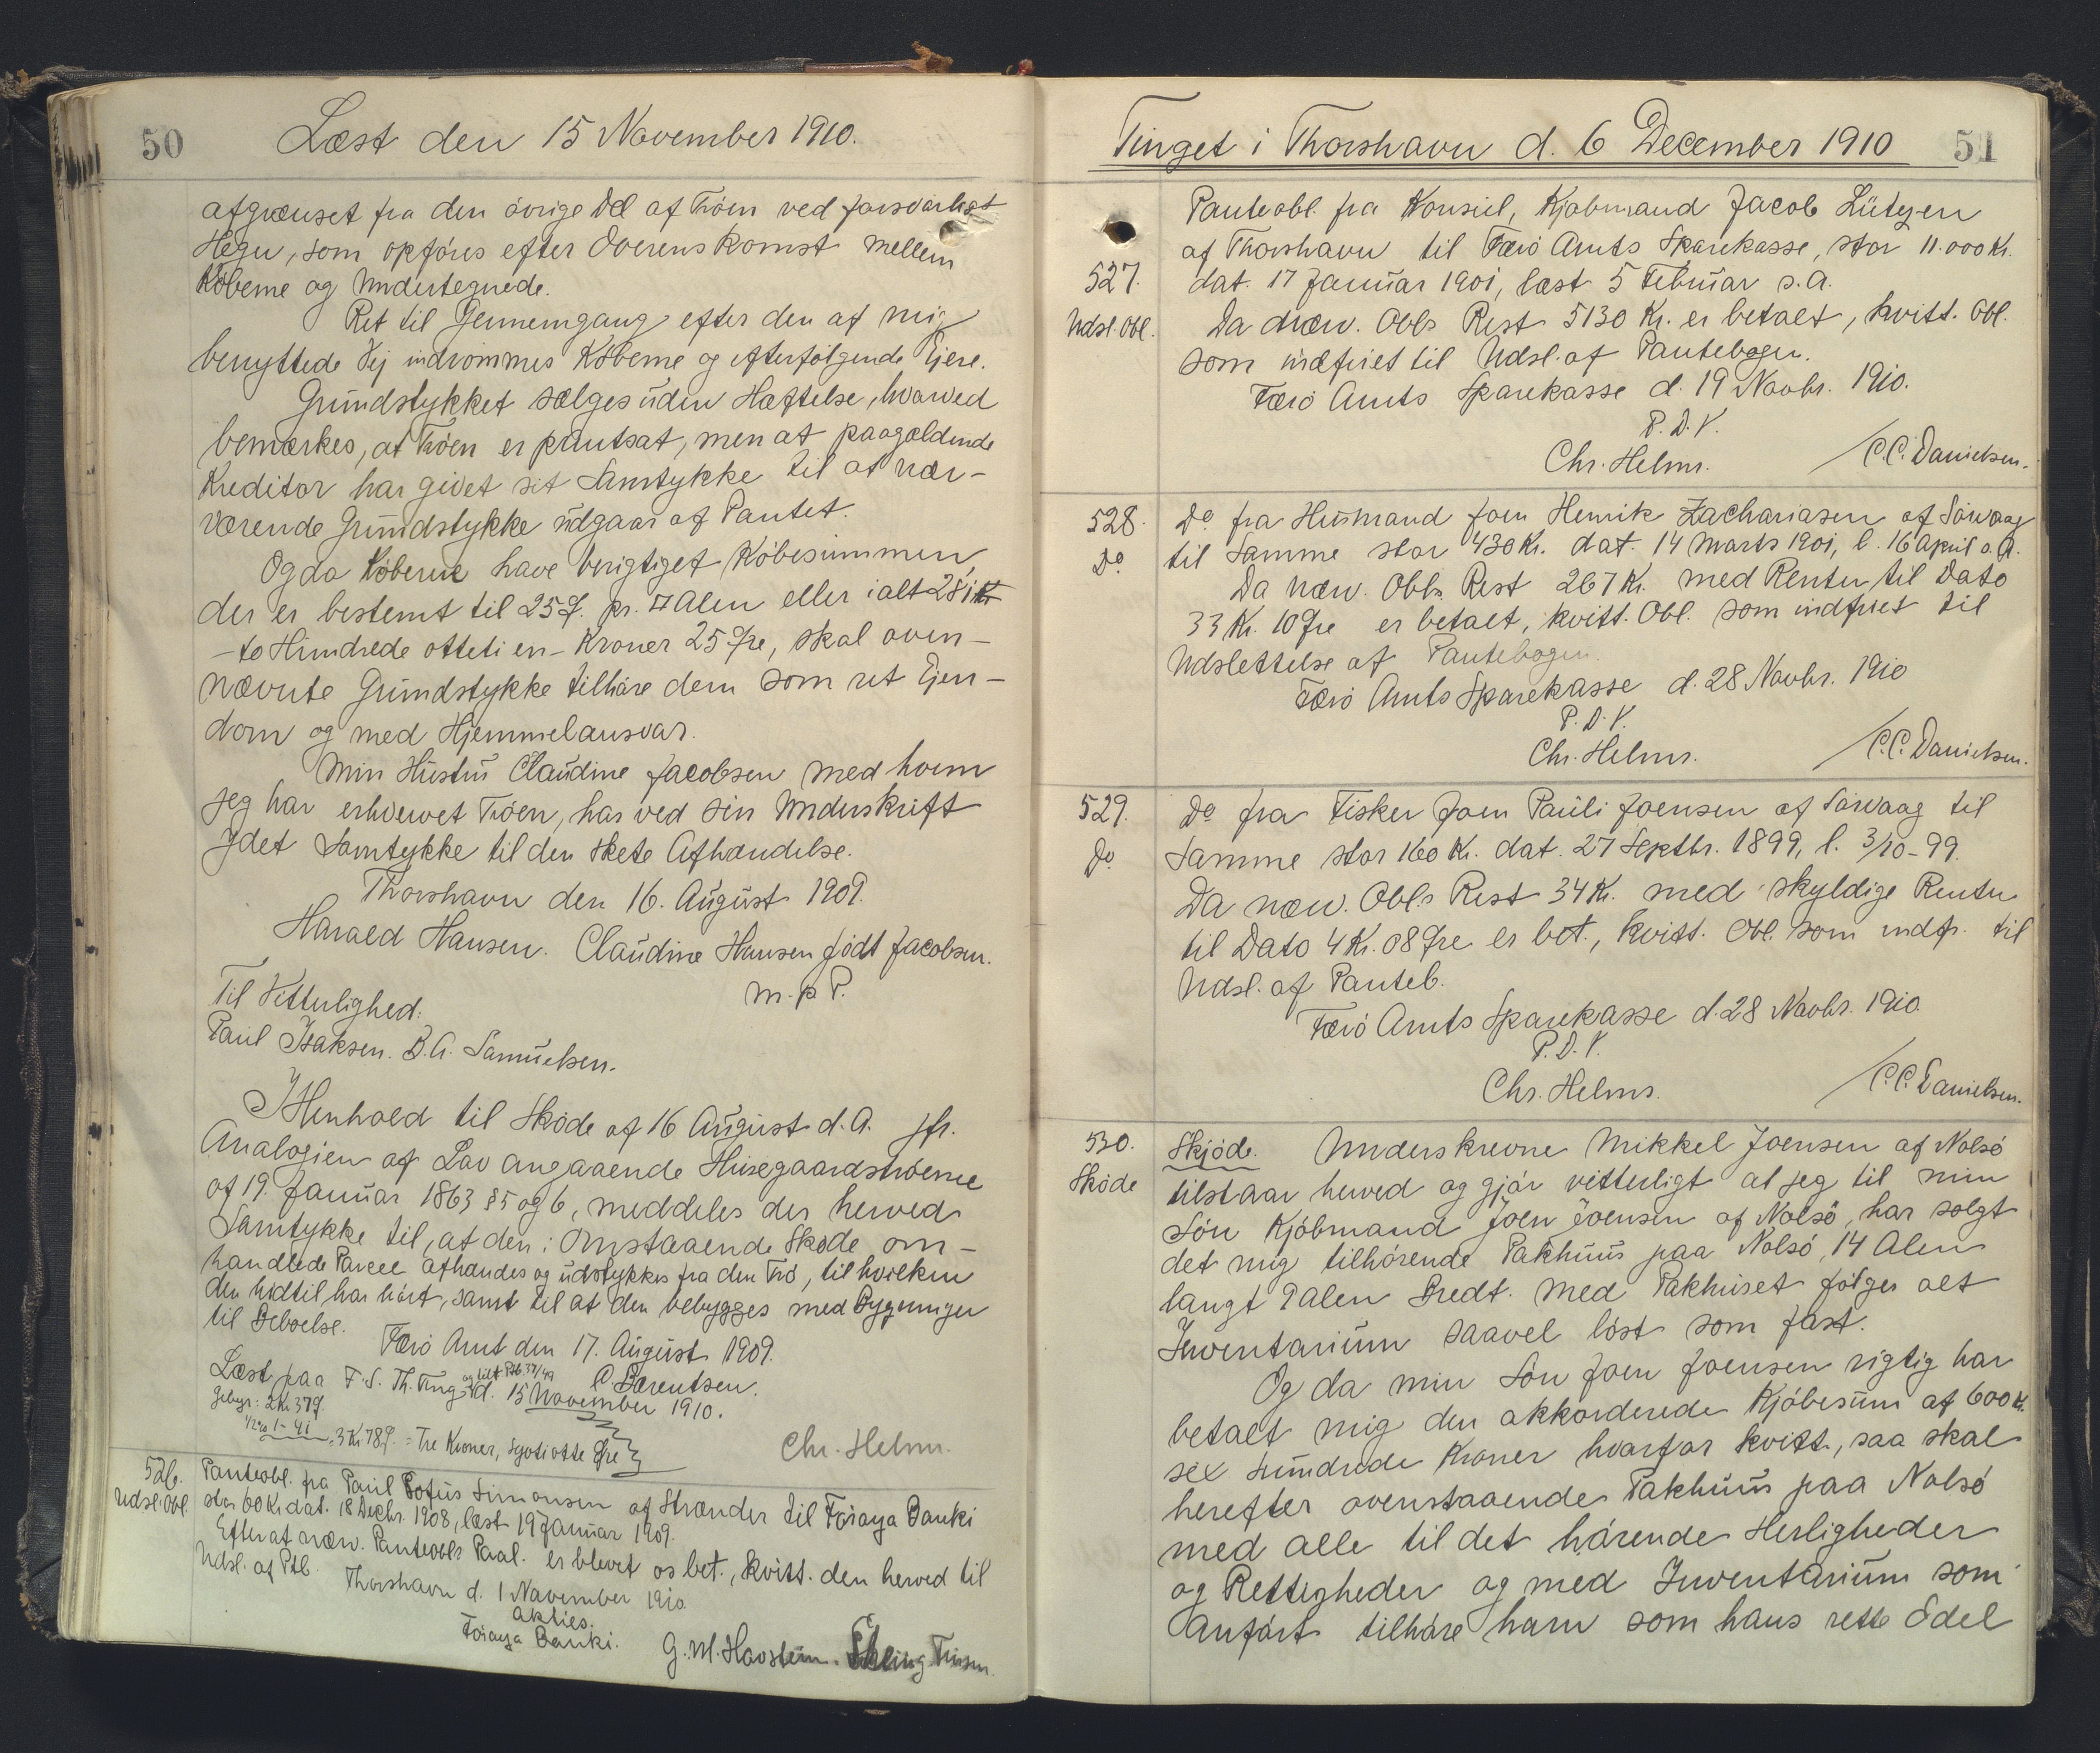 50
Læst den 15 November 1910.
afgrænset fra den övrige Del af Tröen ved forsvarligt
Hegn, som opföres efter Overenskomst mellem
Köberne og Undertegnede.
Ret til Gennemgang efter den af mig
benyttede Vej indrömmes Köberne og efterfölgende Ejere.
Grundstykket sælges uden Hæftelse, hvorved
bemærkes, at Tröen er pantsat, men at paagældende
Kreditor har givet sit Samtykke til at nær-
værende Grundstykke udgaar af Pantet.
Og da Köberne have berigtiget Köbesummen,
der er bestemt til 25 Ø. pr. □ Alen eller ialt 281 Kr
- to Hundrede otteti en - Kroner 25 Øre, skal oven-
nævnte Grundstykke tilhöre dem som ret Ejen-
dom og med Hjemmelansvar.
Min Hustru Claudine Jacobsen med hvem
jeg har erhvervet Tröen, har ved sin Underskrift
ydet Samtykke til den skete Afhændelse.
Thorshavn den 16. August 1909.
Harald Hansen. Claudine Hansen födt Jacobsen.
m. p. P.
Til Vitterlighed:
Paul Isaksen. B.A. Samuelsen.
I Henhold til Sköde af 16 August d. A. jfr.
Analogien af Lov angaaende Husegaardströerne
af 19. Januar 1863 § 5 og 6, meddeles der herved
Samtykke til, at den i Omstaaende Sköde om-
handlede Parcel afhændes og udstykkes fra den Trö, til hvilken
den hidtil har hört, samt til at den bebygges med Bygninger
til Beboelse.
Færö Amt den 17. August 1909.
C. Bærentsen.
Læst paa F. S. Th. Ting d. 15 November 1910.
og tilf. Ptb. 37/49
Gebyr: 2 Kr 37 Ø.
1/2 % 1 - 41
3 Kr 78 Ø. = Tre Kroner, syotiotte Øre
Chr. Helms.
526.
Udsl. Obl.
Panteobl. fra Paul Pofus Simonsen af Strænder til Föroya Banki
stor 60 Kr. dat. 18 Decbr. 1908, læst 19 Januar 1909.
Efterat næv. Panteobls Paal. er blevet os bet., kvitt. den herved til
Udsl. af Ptb.
Thorshavn d. 1 November 1910
Akties.
Föroya Banki.
G. M. Havsteen. Finsen
51
Tinget i Thorshavn d. 6 December 1910
527.
Udsl. Obl.
Panteobl. fra Konsul, Kjöbmand Jacob Lützen
af Thorshavn til Færö Amts Sparekasse, stor 11.000 Kr.
dat. 17 Januar 1901, læst 5 Februar s. A.
Da næv. Obls Rest 5130 Kr. er betalt, kvitt. Obl.
som indfriet til Udsl. af Pantebogen.
Færö Amts Sparekasse d. 19 Novbr. 1910.
P. D. V.
Chr. Helms. / C.C. Danielsen.
528.
Do.
Do fra Husmand Joen Henrik Zachariasen af Sörvaag
til Samme stor 430 Kr. dat. 14 Marts 1901, l. 16 April s. A.
Da næv. Obls Rest 267 Kr. med Renter til Dato
33 Kr. 10 Øre er betalt, kvitt. Obl. som indfriet til
Udslettelse af Pantebogen.
Færö Amts Sparekasse d. 28 Novbr. 1910
P. D. V.
Chr. Helms. / C.C. Danielsen.
529.
Do.
Do fra Fisker Joen Pauli Joensen af Sörvaag til
Samme stor 160 Kr. dat. 27 Septbr. 1899, l. 3/10-99.
Da næv. Obls Rest 34 Kr. med skyldige Renter
til Dato 4 Kr. 08 Øre er bet., kvitt. Obl. som indfr. til
Udsl. af Panteb.
Færö Amts Sparekasse d. 28 Novbr. 1910.
P. D. V.
Chr. Helms. / C.C. Danielsen.
530.
Sköde
Skjöde. Underskrevne Mikkel Joensen af Nolsö
tilstaar herved og gjör vitterligt at jeg til min
Sön Kjöbmand Joen Joensen af Nolsö, har solgt
det mig tilhörende Pakhuus paa Nolsö, 14 Alen
langt 9 alen Bredt. Med Pakhuset fölger alt
Inventarium saavel löst som fast.
Og da min Sön Joen Joensen rigtig har
betalt mig den akkorderede Kjöbesum af 600 Kr.
sex Hundrede Kroner hvorfor kvitt., saa skal
herefter ovenstaaende Pakhuus paa Nolsö
med alle til det hörende Herligheder
og Rettigheder og med Inventarium som
Anfört tilhöre ham som hans rette Edel